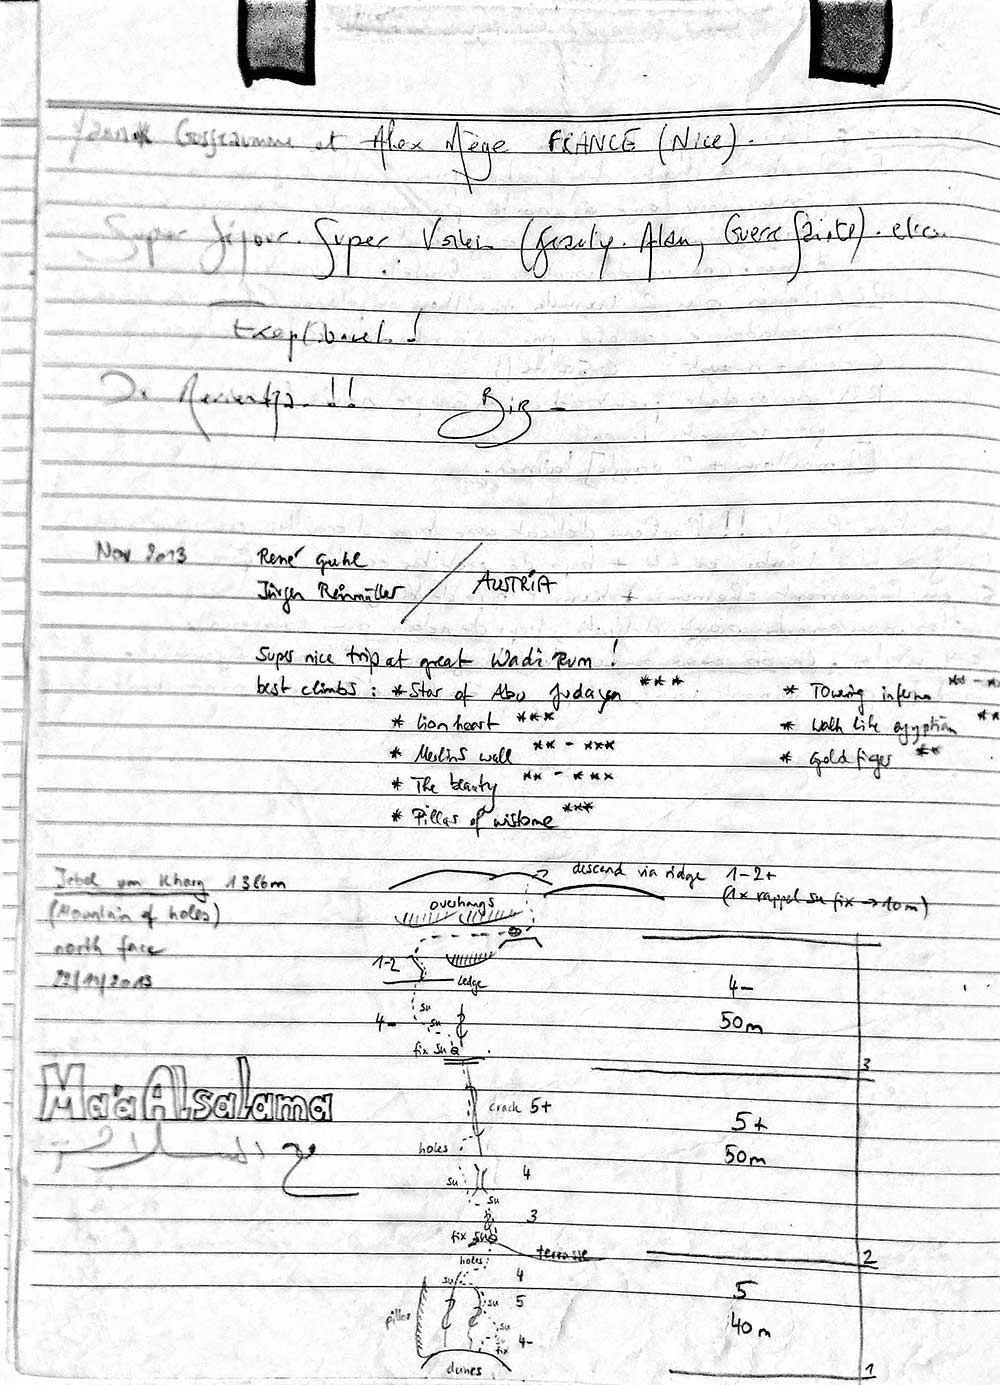 et Alex Mège FRANCE (Nice).
Super Séjour. Super (Guerre Sainte). etc..
!
!!
Nov 2013 René Guhl
Jürgen Reinmüller / AUSTRIA
Super nice trip at great Wadi Rum !
best climbs : * Star of Abu Judayda *** * Towering inferno ** - **
* Lion heart *** * Walk like egyptian **
* Merlins wall ** - *** * Goldfiger **
* The beauty ** - ***
* Pillar of wistome ***
Jebel um Kharg 1386m
(Mountain of holes)
north face
22/11/2013
descend via ridge 1-2+
(1x rappel su fix → 10m)
overhangs
1-2
ledge
su
4- su
fix su
4-
50m
3
Ma'a Alsalama
مع السلامة
crack 5+
holes
su 4
su
3
fix su
5+
50m
terrasse
2
holes
su 4
su 5
pillar
su
su 4-
fix
dunes
5
40m
1